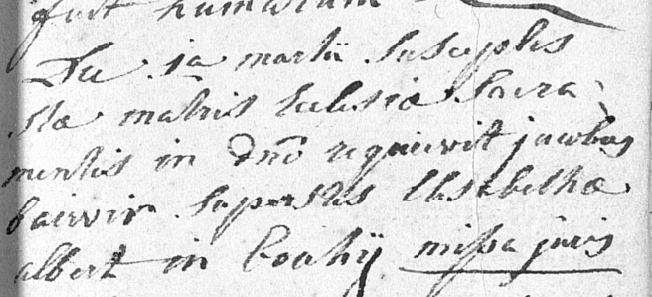 fuit humatum
Die 1a martii susceptis
stæ matris Eclesiæ sacra
mentis in dno requievit jacobus
bairvir superstes Elisabethæ
albert in bouhÿ missa juris